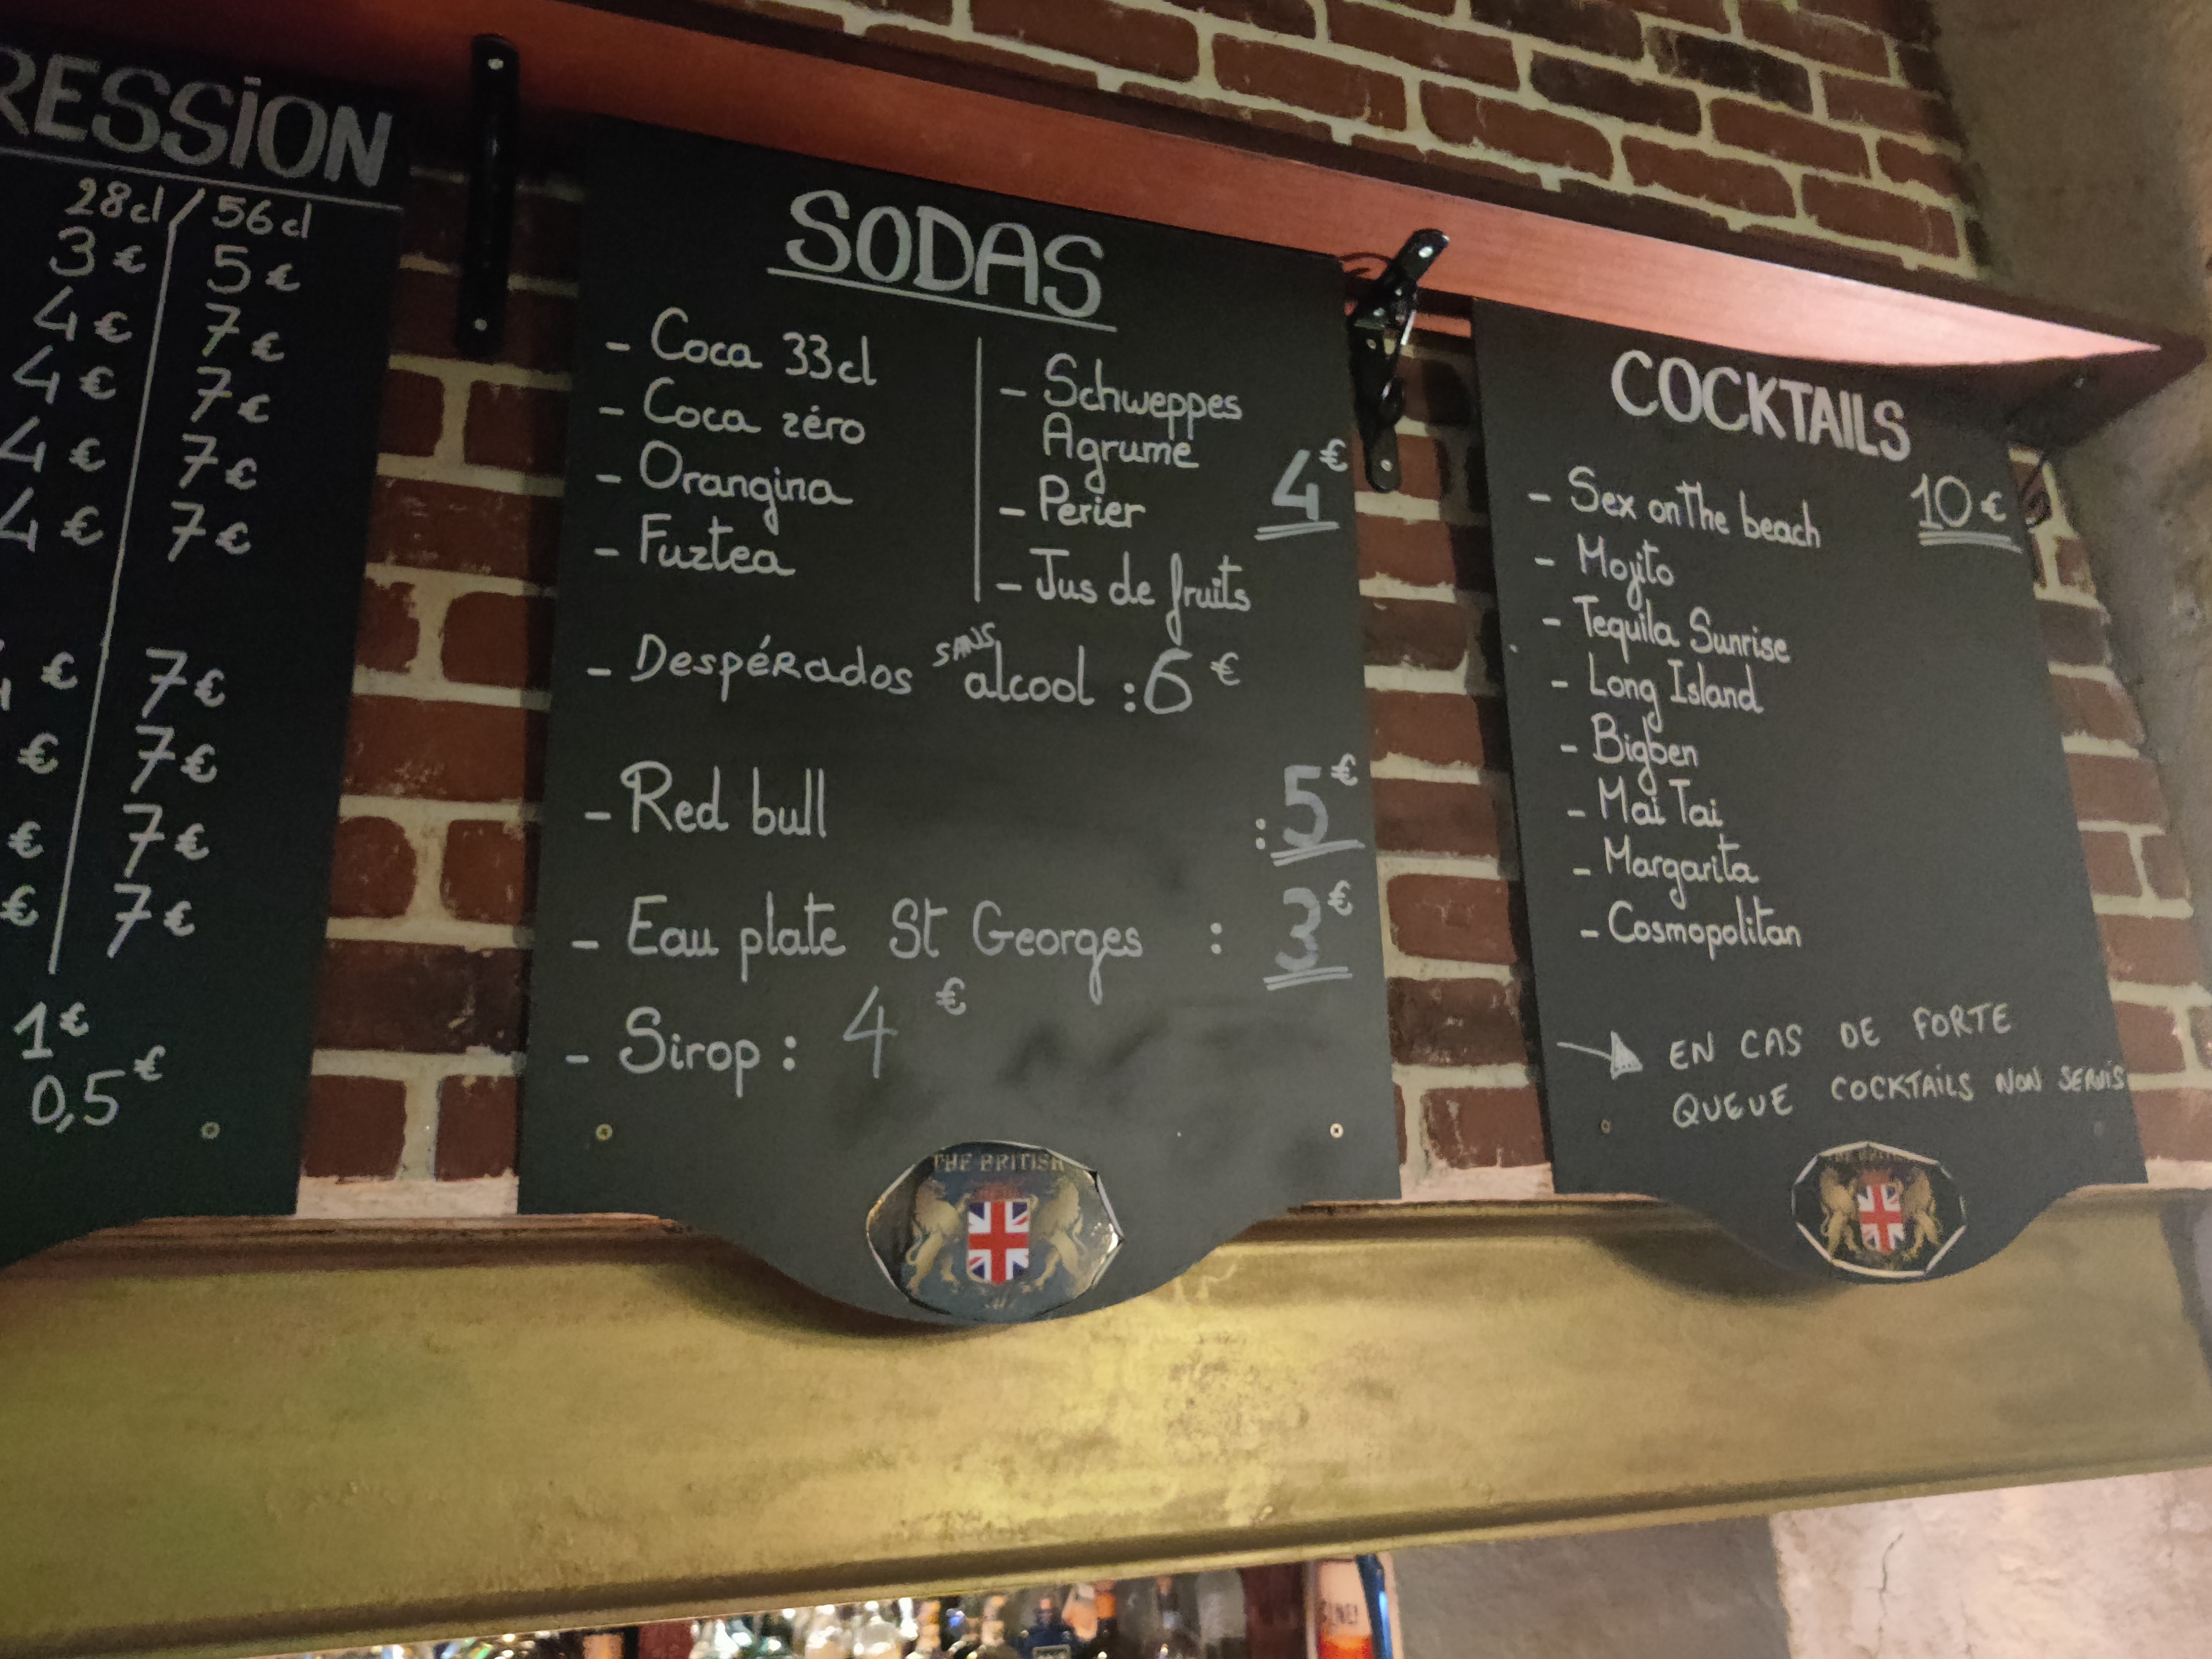 RESSION
28cl / 56cl
3€ 5€
4€ 7€
4€ 7€
4€ 7€
4€ 7€
€ 7€
€ 7€
€ 7€
€ 7€
1€
0,5€
SODAS
- Coca 33cl
- Coca zéro
- Orangina
- Fuztea
- Schweppes
Agrume
- Perier
- Jus de fruits
4€
- Despérados SANS alcool : 6€
- Red bull : 5€
- Eau plate St Georges : 3€
- Sirop : 4€
THE BRITISH
COCKTAILS
- Sex on The beach 10€
- Mojito
- Tequila Sunrise
- Long Island
- Bigben
- Mai Tai
- Margarita
- Cosmopolitan
EN CAS DE FORTE
QUEUE COCKTAILS NON SERVIS
THE BRITISH